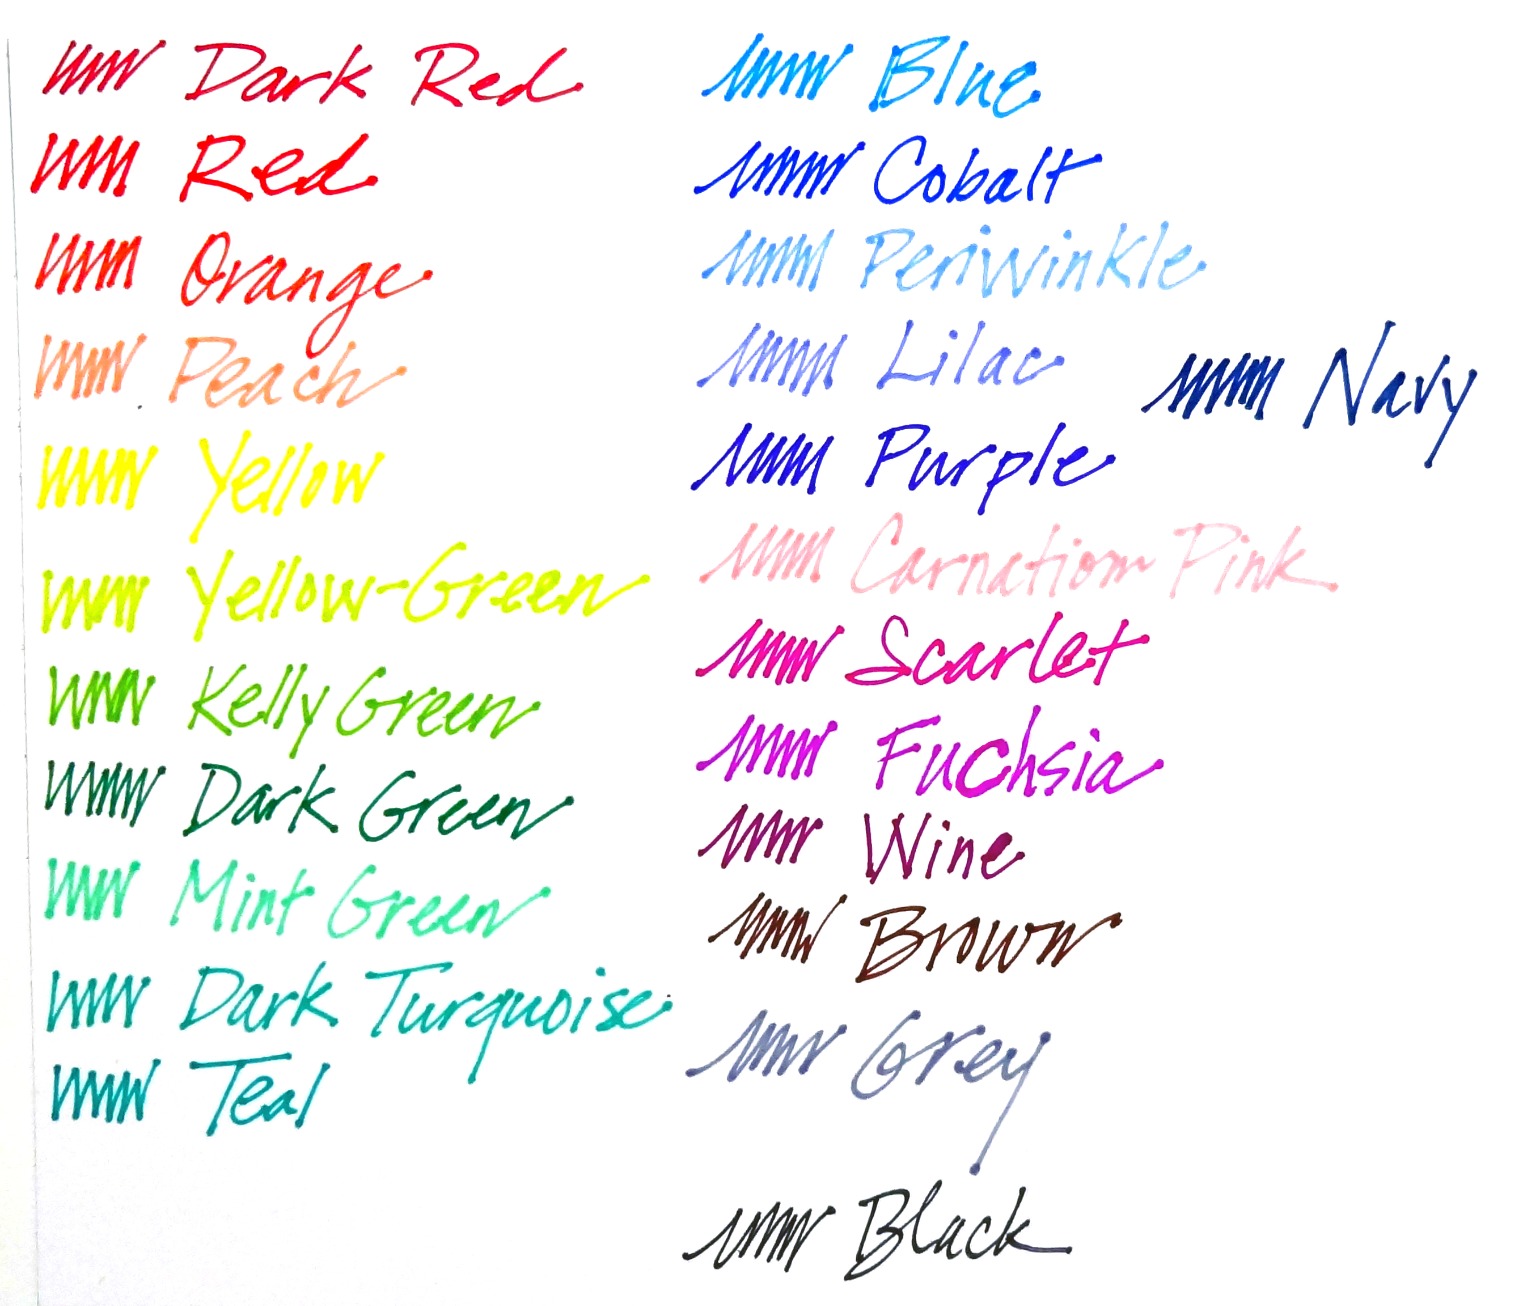 Dark Red
Red
Orange
Peach
Yellow
Yellow-Green
Kelly Green
Dark Green
Mint Green
Dark Turquoise
Teal
Blue
Cobalt
Periwinkle
Lilac
Purple
Carnation Pink
Scarlet
Fuchsia
Wine
Brown
Grey
Black
Navy